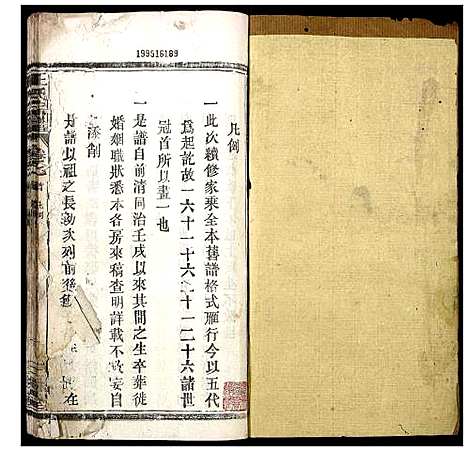 199516189
凡例
一此次續修家乘全本舊譜格式雁行今以五代
為起訖故一六十一十六二十一二十六諸世
冠首所以畫一也
一是譜自前清同治壬戌以來其間之生卒葬徙
婚姻職狀悉本各房來稿查明詳載不敢妄自
添削
譜以祖之長幼次列前後 在